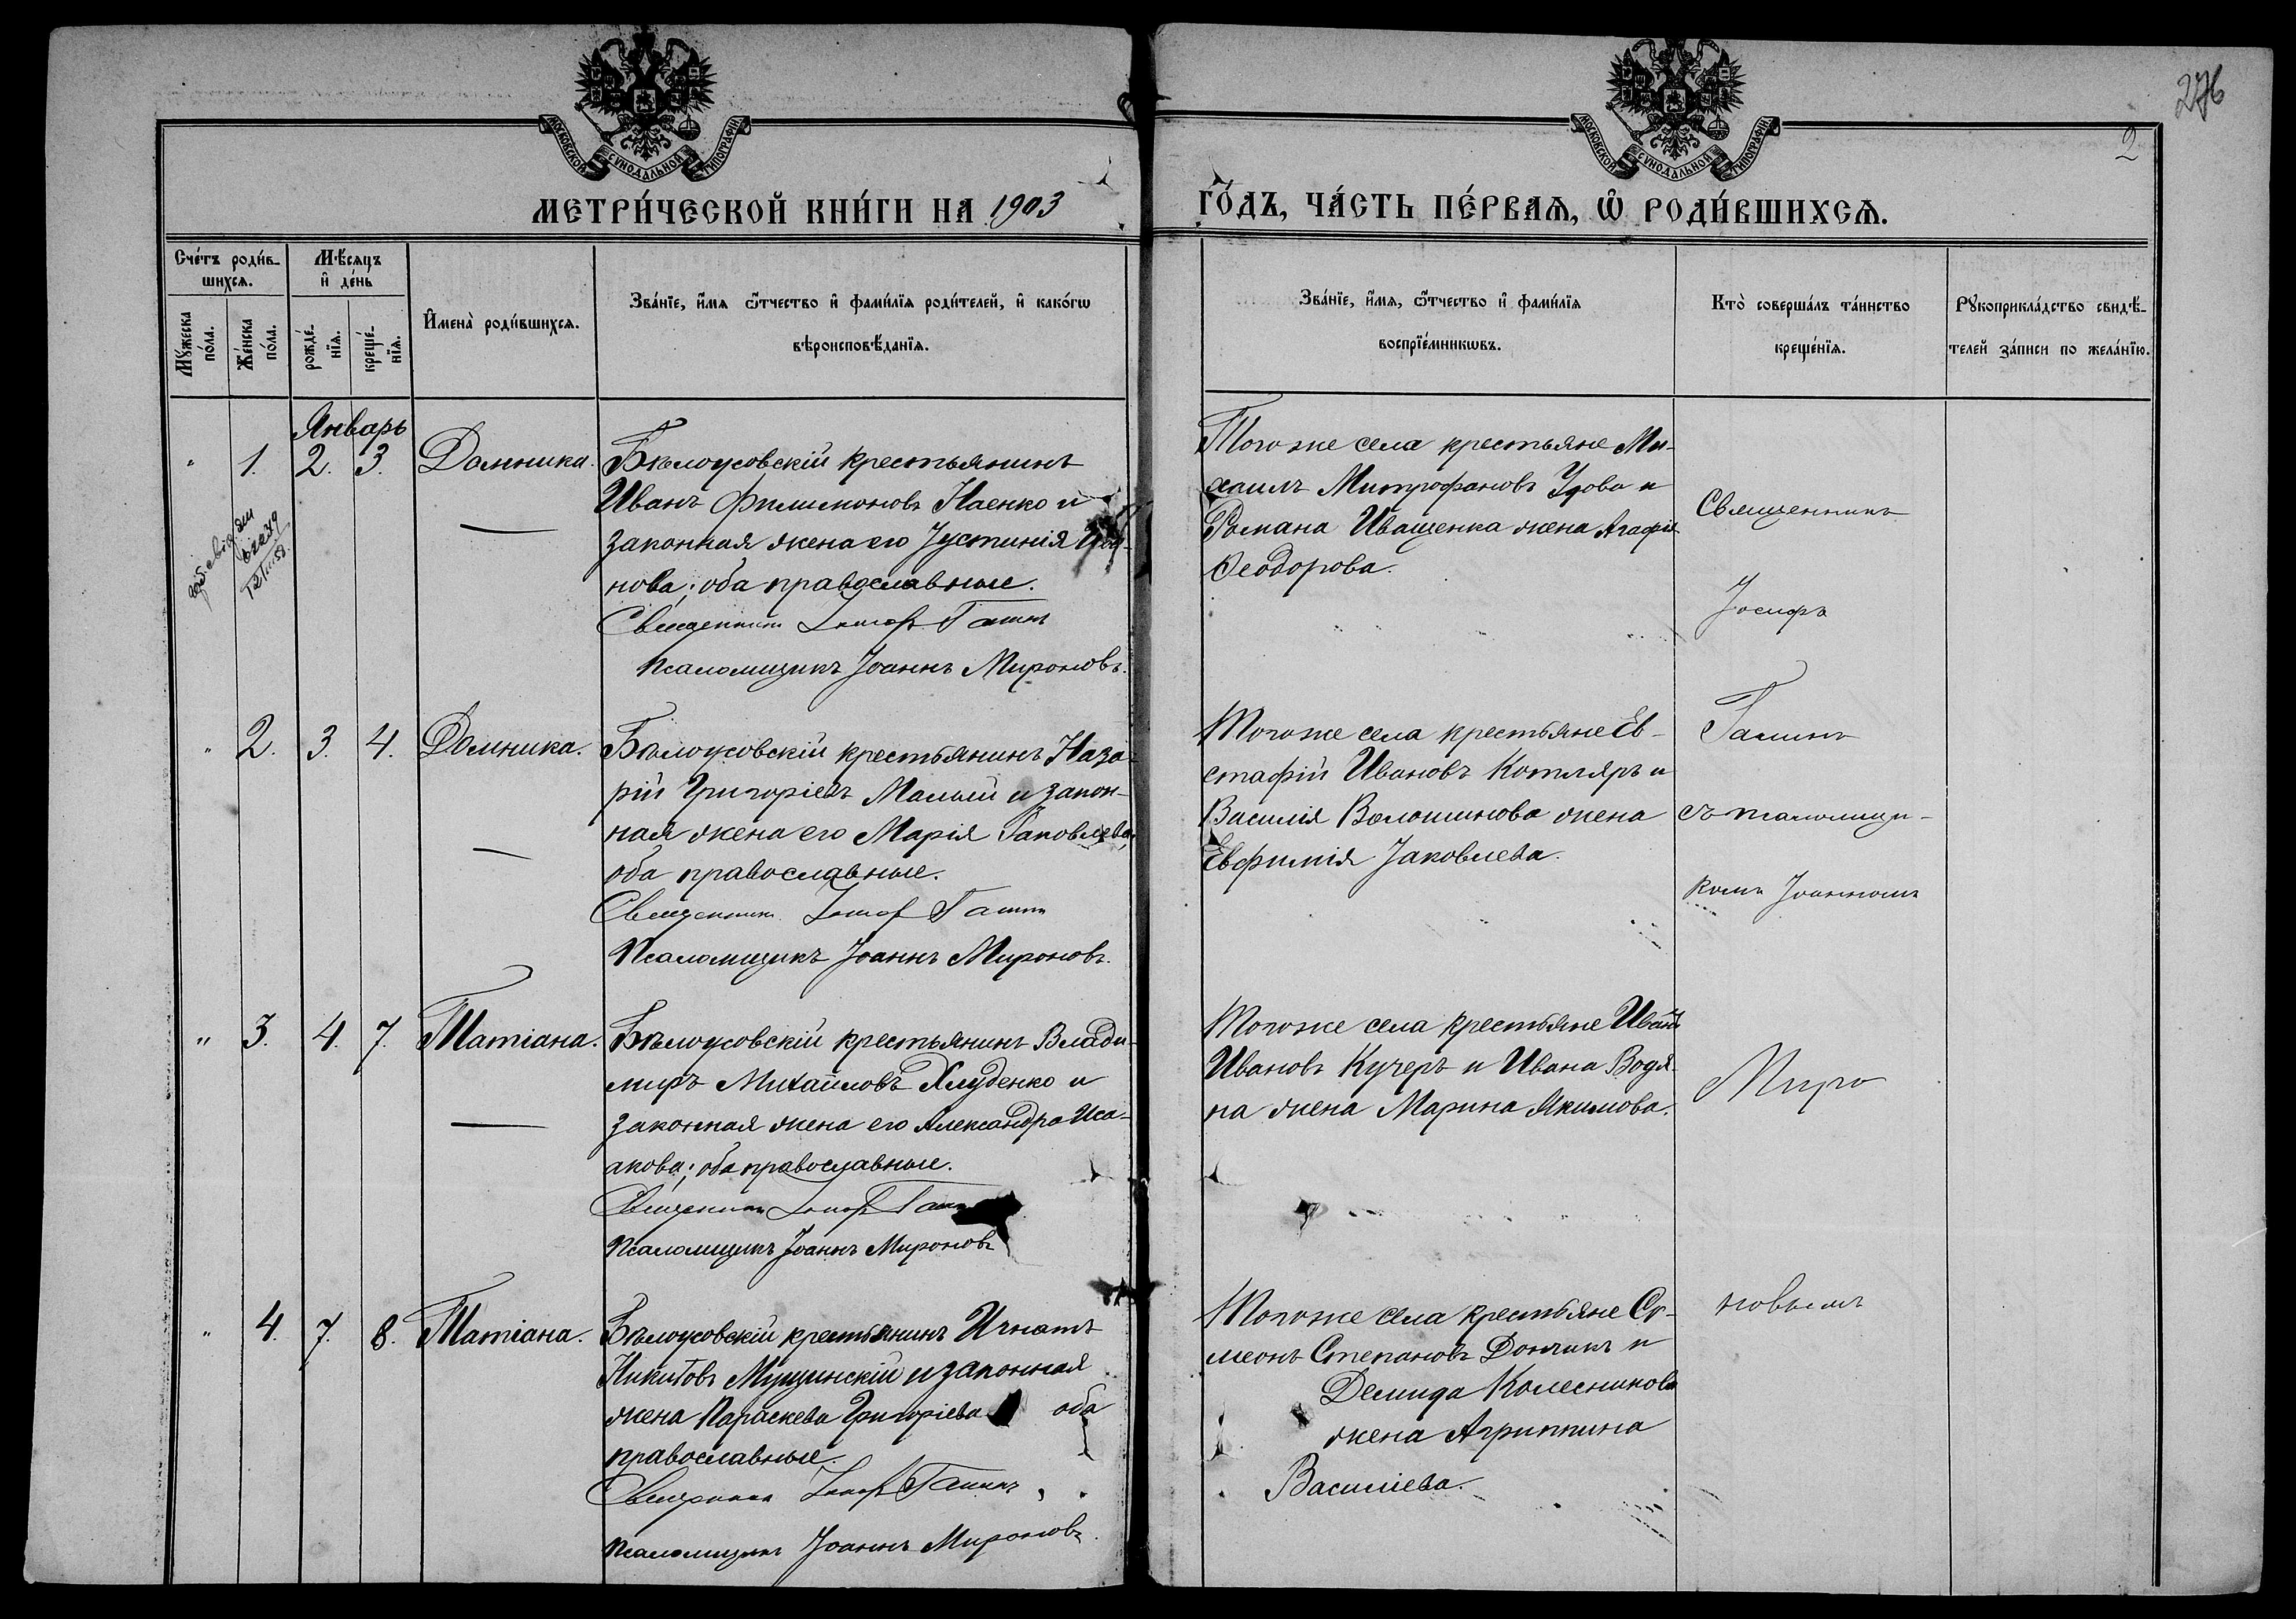 276
2
МОСКОВСКОЙ СѴНОДАЛЬНОЙ ТИПОГРАФІИ
МОСКОВСКОЙ СѴНОДАЛЬНОЙ ТИПОГРАФІИ
МЕТРИ́ЧЕСКОЙ КНИ́ГИ НА 1903
ГО́ДЪ, ЧА́СТЬ ПЕ́РВАѦ, Ѡ҆ РОДИ́ВШИХСѦ.
Сче́тъ роди́в-
шихсѧ.
Мꙋ́жеска
по́ла.
Же́нска
по́ла.
Мѣ́сѧцъ
и҆ де́нь
рожде́-
нїѧ.
креще́-
нїѧ.
И҆мена̀ роди́вшихсѧ.
Зва́нїе, и҆́мѧ ѻ҆́тчество и҆ фами́лїѧ роди́телей, и҆ како́гѡ
вѣроисповѣ́данїѧ.
Зва́нїе, и҆́мѧ, ѻ҆́тчество и҆ фами́лїѧ
воспрїе́мникѡвъ.
Кто̀ соверша́лъ та́инство
креще́нїѧ.
Рꙋкоприкла́дство свидѣ́-
телей за́писи по жела́нїю.
Январь
" 1. 2. 3. Домника.
Бѣлоусовскій крестьянинъ
Иванъ Филимоновъ Наенко и
законная жена его Іустинія
нова; оба православные.
Священникъ Іосифъ Галинъ
Псаломщикъ Іоаннъ Мироновъ.
Того же села крестьяне Ми-
хаилъ Митрофановъ Удова и
Романа Иващенка жена Агафія
Ѳеодорова.
Священникъ
Іосифъ
" 2. 3. 4. Домника.
Бѣлоусовскій крестьянинъ Наза-
рій Григоріевъ Малый и закон-
ная жена его Марія Іаковлева;
оба православные.
Священникъ Іосифъ Галинъ
Псаломщикъ Іоаннъ Мироновъ.
Того же села крестьяне Ев-
стафій Ивановъ Котляръ и
Василія Волошинова жена
Евфимія Іаковлева.
Галинъ
съ псаломщи-
комъ Іоанномъ
" 3. 4. 7. Татіана.
Бѣлоусовскій крестьянинъ Влади-
миръ Михайловъ Хлуденко и
законная жена его Александра Иса-
акова; оба православные.
Священникъ Іосифъ
Псаломщикъ Іоаннъ Мироновъ
Того же села крестьяне Иванъ
Ивановъ Кучеръ и Ивана Водя-
на жена Марина Якимова.
Миро
" 4. 7. 8. Татіана.
Бѣлоусовскій крестьянинъ Игнатъ
Никитовъ Мущинскій и законная
жена Параскева Григоріева оба
православные.
Священникъ Іосифъ Галинъ
Псаломщикъ Іоаннъ Мироновъ
Того же села крестьяне Си-
меонъ Степановъ Дончикъ и
Демида Колесникова
жена Агриппина
Василіева.
новымъ